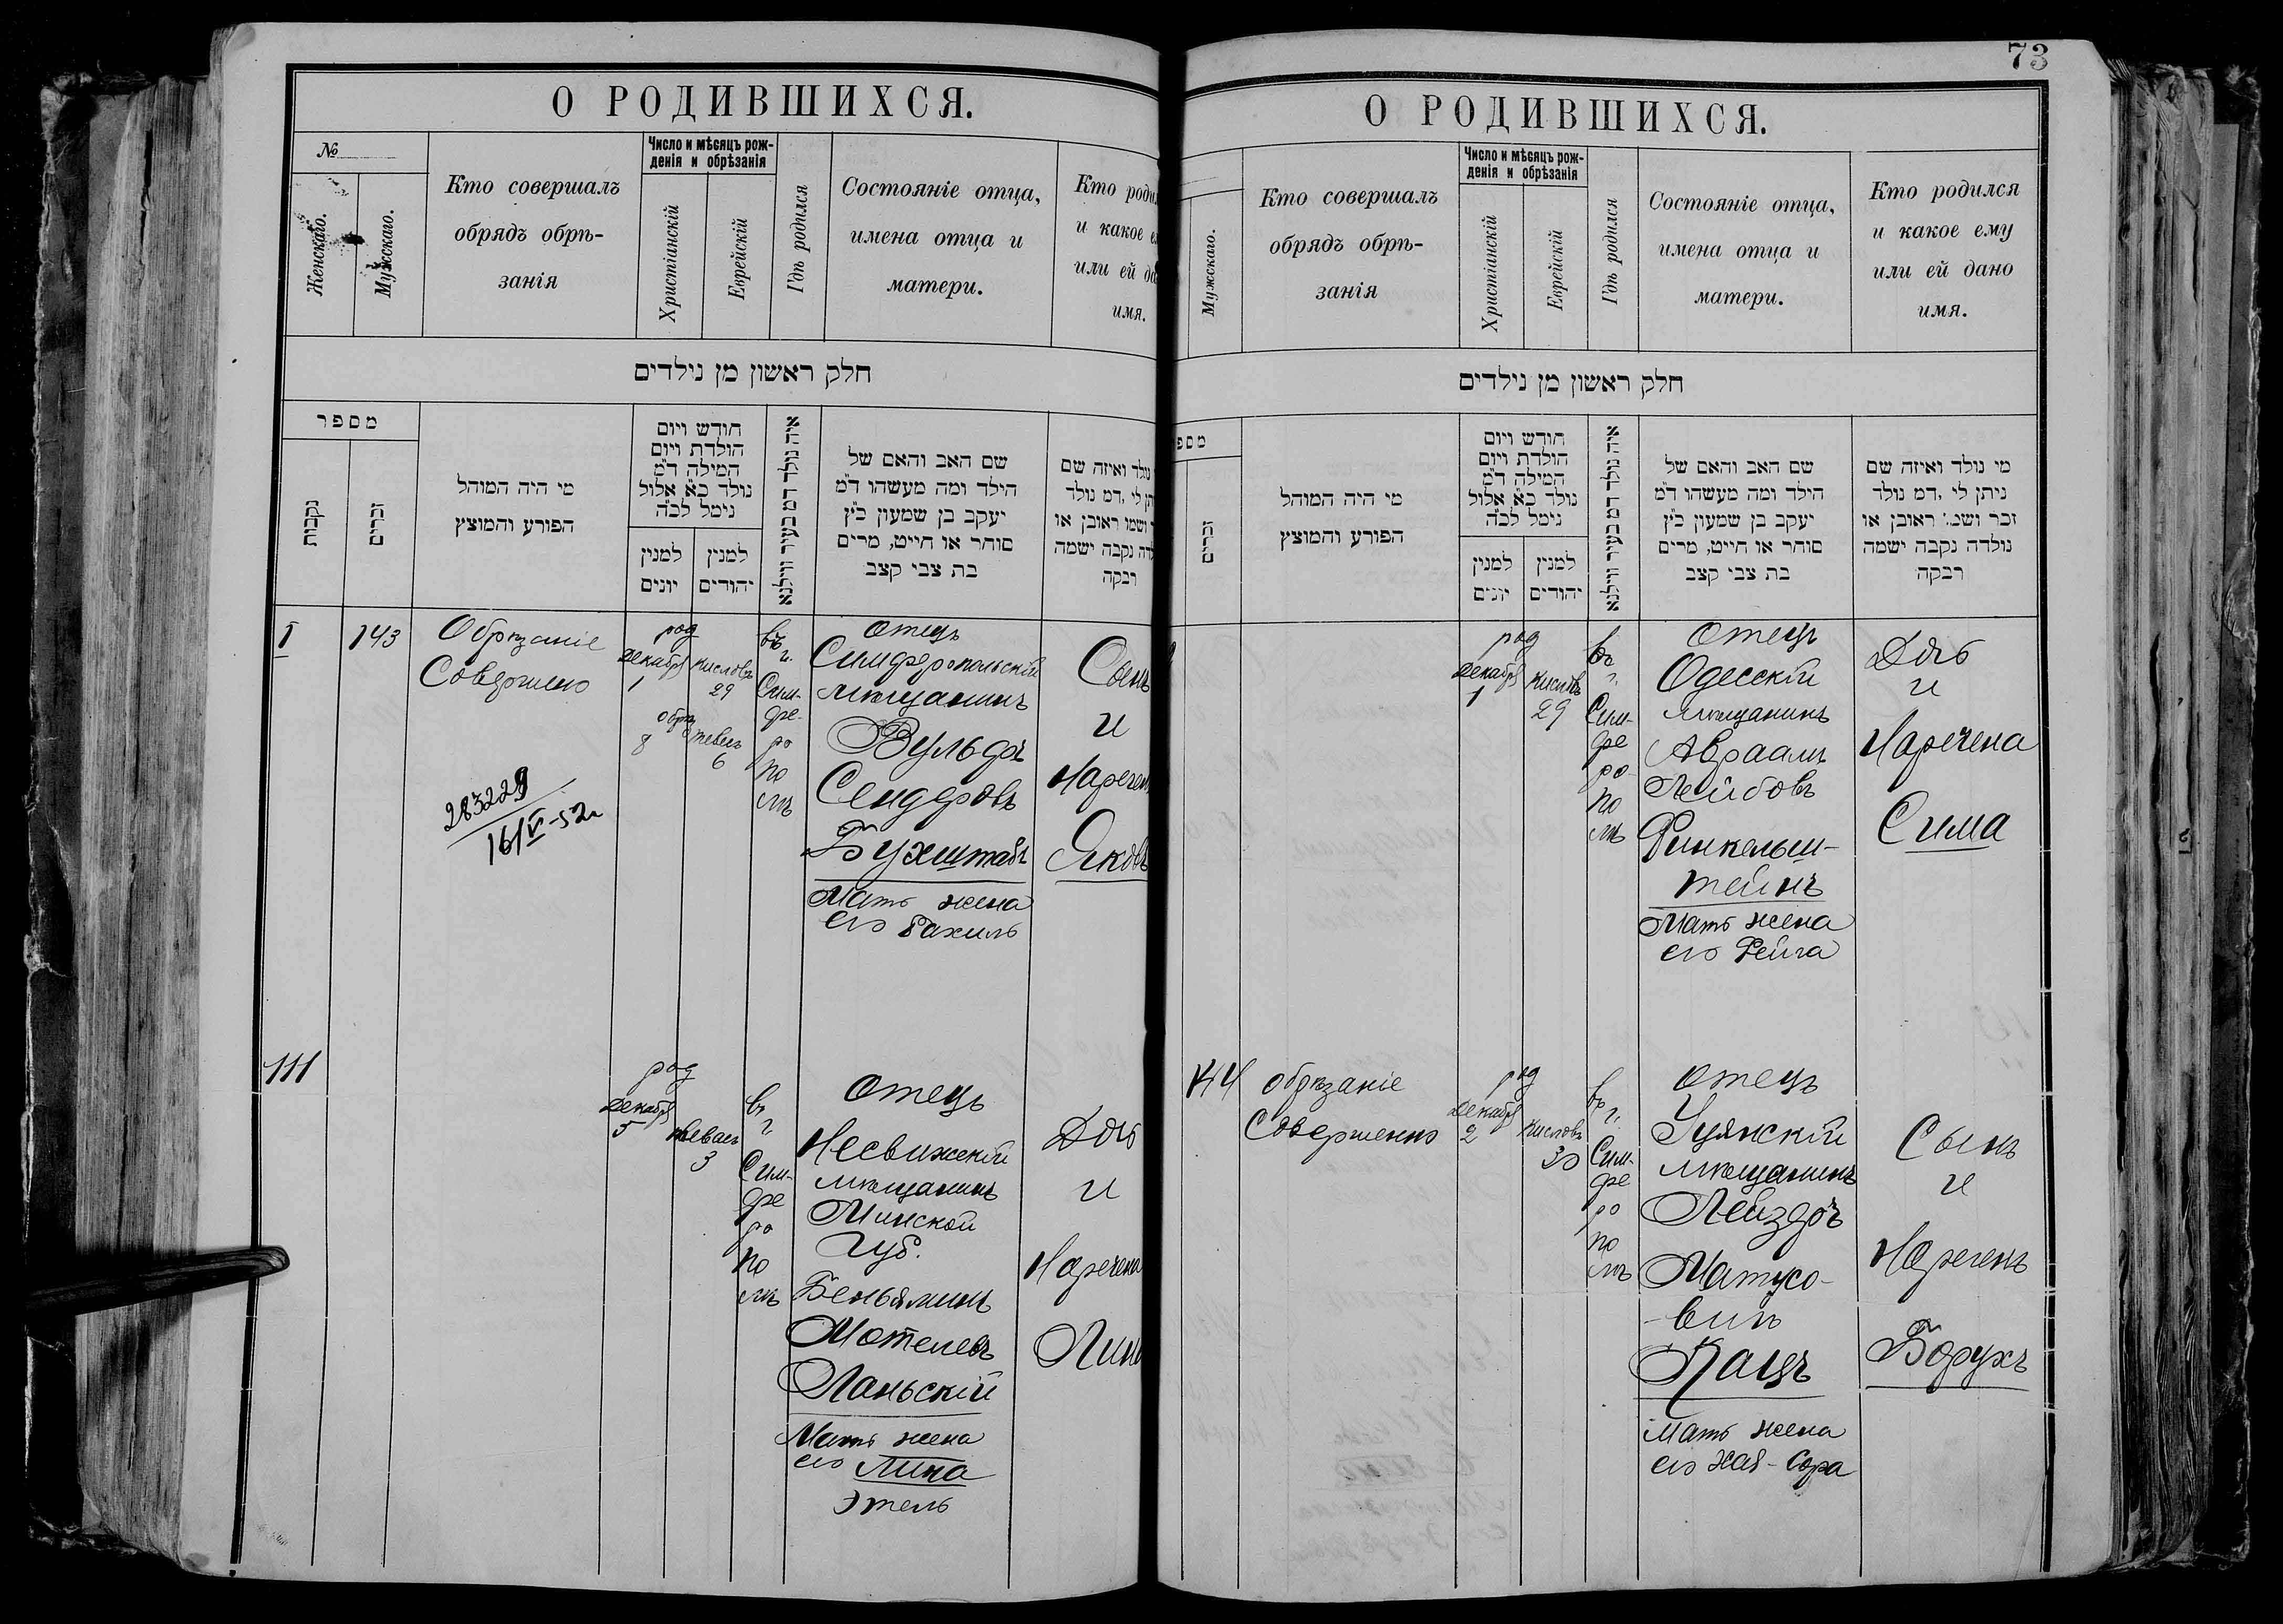 О РОДИВШИХСЯ.
№
Женскаго.
Мужскаго.
Кто совершалъ
обрядъ обрѣ-
занія
Число и мѣсяцъ рож-
денія и обрѣзанія
Христіанскій
Еврейскій
Гдѣ родился
Состояніе отца,
имена отца и
матери.
Кто роди
и какое е
или ей да
имя.
חלק ראשון מן נילדים
מספר
נקבות
זכרים
מי היה המוהל
הפורע והמוצץ
חודש ויום
הולדת ויום
המילה ד״מ
נולד כ״א אלול
נימל לכ״ה
למנין
יונים
למנין
יהודים
איה נולד דמ בעיר ווילנא
שם האב והאם של
הילד ומה מעשהו ד״מ
יעקב בן שמעון כ״ץ
סוחר או חייט, מרים
בת צבי קצב
נולד ואיזה שם
תן לי, דמ נולד
ושמו ראובן או
לדה נקבה ישמה
רבקה
143
Обрѣзаніе
Совершено
283229
16/V-52г
род
Декабря
1
Кислевъ
29
обрѣз
8
тевесъ
6
въ
г.
Сим-
фе-
ро
по
лѣ
Отецъ
Симферопольскій
мѣщанинъ
Вульфъ
Сендеровъ
Бухштабъ
Мать жена
его Рахиль
Сынъ
и
Наречен
Яковъ
111
род
Декабря
5
тевесъ
3
въ
г.
Сим-
фе
ро
по
лѣ
Отецъ
Несвижскій
мѣщанинъ
Минской
Губ.
Беньяминъ
Мотелевъ
Ланьскій
Мать жена
его Лина
Этель
Дочь
и
Наречена
О РОДИВШИХСЯ.
73
Мужскаго.
Кто совершалъ
обрядъ обрѣ-
занія
Число и мѣсяцъ рож-
денія и обрѣзанія
Христіанскій
Еврейскій
Гдѣ родился
Состояніе отца,
имена отца и
матери.
Кто родился
и какое ему
или ей дано
имя.
חלק ראשון מן נילדים
מספ
זכרים
מי היה המוהל
הפורע והמוצץ
חודש ויום
הולדת ויום
המילה ד״מ
נולד כ״א אלול
נימל לכ״ה
למנין
יונים
למנין
יהודים
איה נולד דמ בעיר ווילנא
שם האב והאם של
הילד ומה מעשהו ד״מ
יעקב בן שמעון כ״ץ
סוחר או חייט, מרים
בת צבי קצב
מי נולד ואיזה שם
ניתן לי, דמ נולד
זכר ושמ׳ ראובן או
נולדה נקבה ישמה
רבקה
род
Декабря
1
Кислевъ
29
въ
г.
Сим-
фе
ро-
по
лѣ
Отецъ
Одесскій
мѣщанинъ
Авраамъ
Лейбовъ
Финкельш-
тейнъ
Мать жена
его Фейга
Дочь
и
Наречена
Сима
144
обрѣзаніе
Совершенно
род
Декабря
2
Кислевъ
30
въ
г.
Сим-
фе
ро
по
лѣ
Отецъ
Уцянскій
мѣщанинъ
Лейзеръ
Матусо-
-вичъ
Кацъ
Мать жена
его Хая-Сора
Сынъ
и
Нареченъ
Борухъ